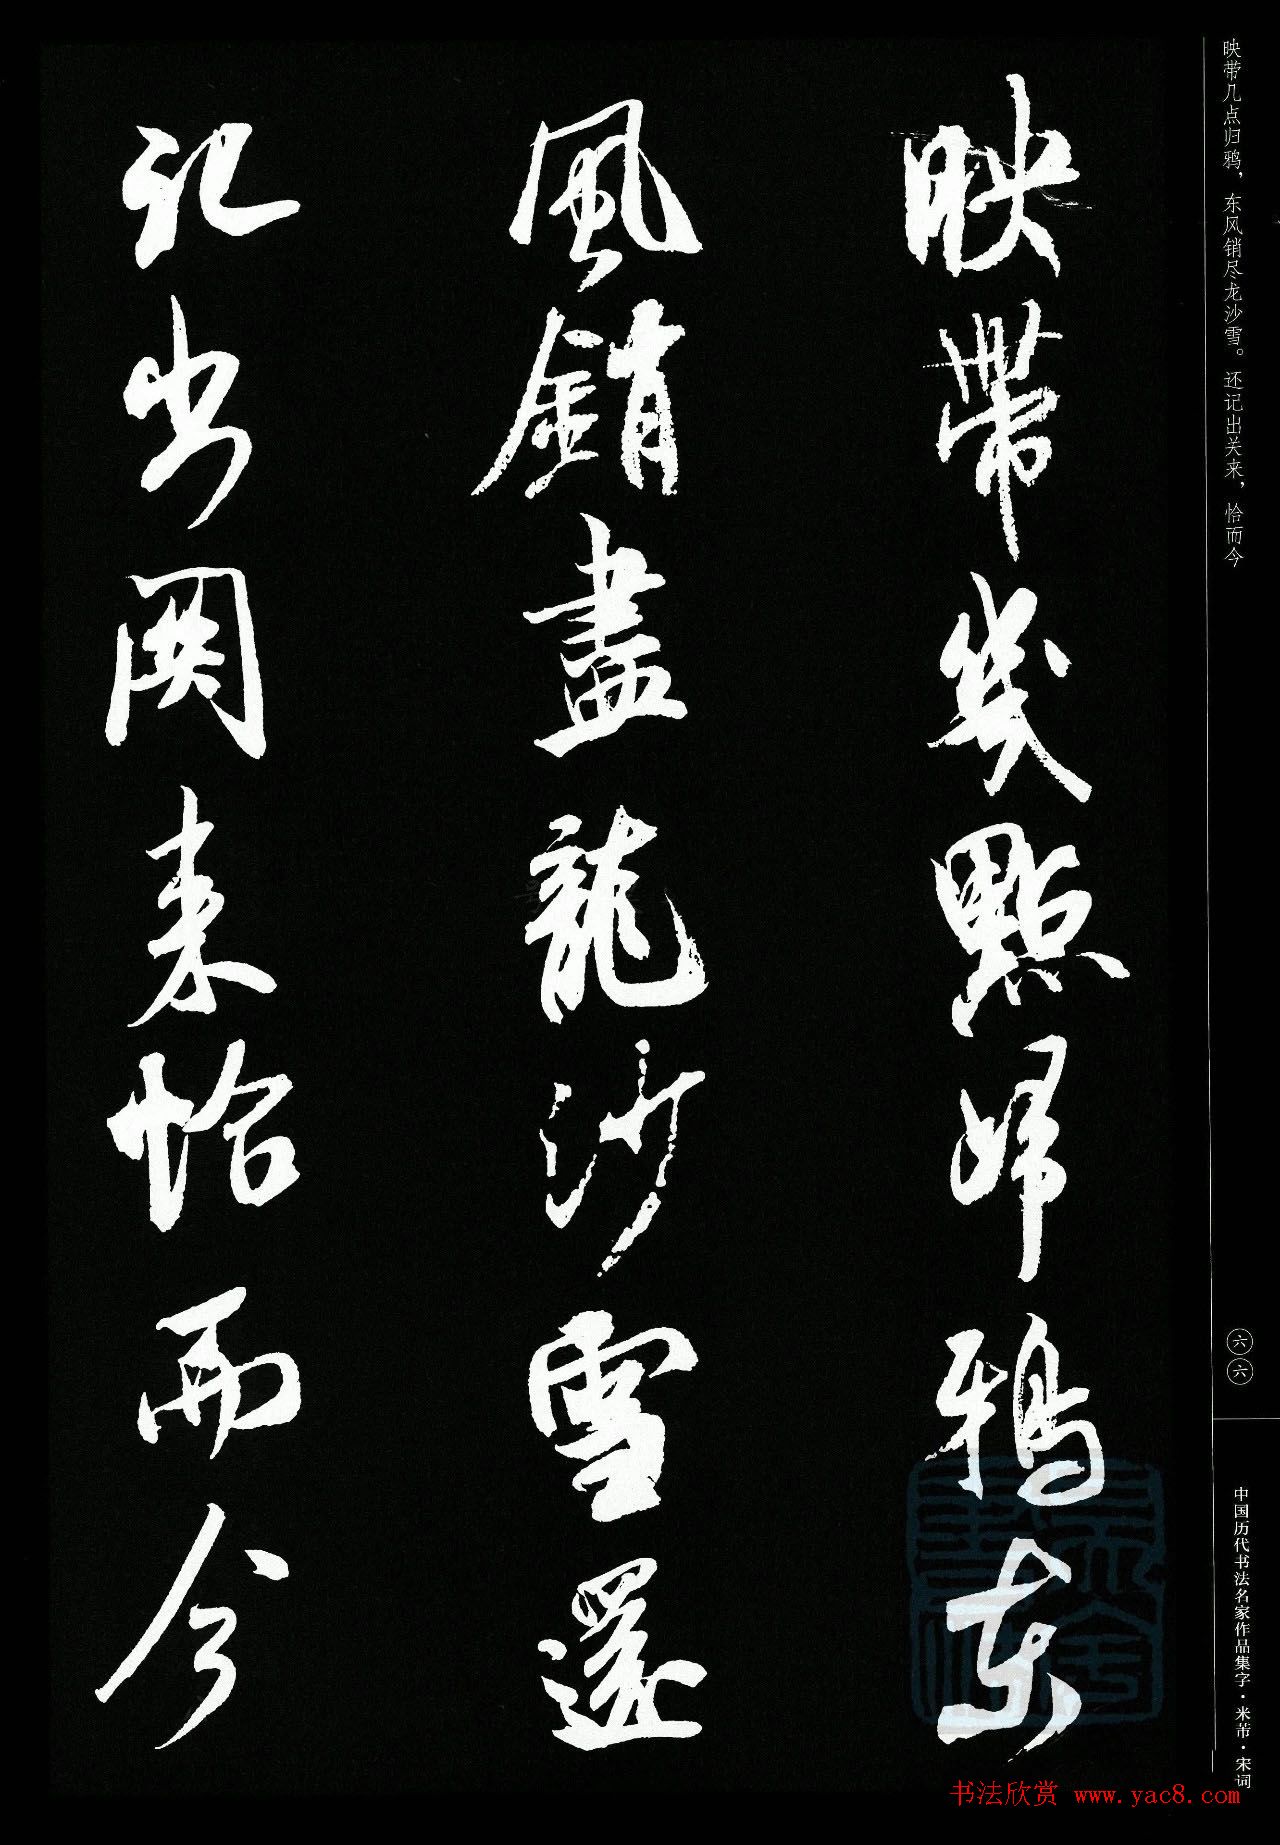 映带几点归鸦，东风销尽龙沙雪。还记出关来，恰而今
映帶幾點歸鴉東
風銷盡龍沙雪還
記出関来恰而今
六六
中国历代书法名家作品集字·米芾·宋词
书法欣赏 www.yac8.com